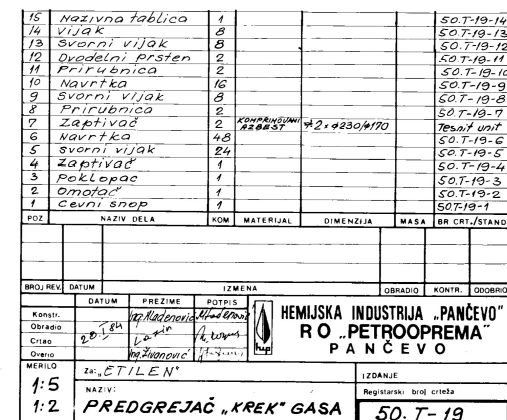 15 Nazivna tablica 1 50.T-19-14
14 Vijak 8 50.T-19-13
13 Svorni vijak 8 50.T-19-12
12 Dvodelni prsten 2 50.T-19-11
11 Prirubnica 2 50.T-19-10
10 Navrtka 16 50.T-19-9
9 Svorni vijak 8 50.T-19-8
8 Prirubnica 2 50.T-19-7
7 Zaptivač 2 KOMPRIMOVANI AZBEST ϕ2 x ϕ230/ϕ170 Tesnit unit
6 Navrtka 48 50.T-19-6
5 svorni vijak 24 50.T-19-5
4 Zaptivač 1 50.T-19-4
3 Poklopac 1 50.T-19-3
2 Omotač 1 50.T-19-2
1 Cevni snop 1 50.T-19-1
POZ NAZIV DELA KOM MATERIJAL DIMENZIJA MASA BR CRT./STAND.
BROJ REV. DATUM IZMENA OBRADIO KONTR. ODOBRIO
DATUM PREZIME POTPIS
Konstr. Ing. Mladenović
Obradio Lazin
Crtao
Overio Ing. Živanović
HEMIJSKA INDUSTRIJA „PANČEVO"
RO „PETROOPREMA"
PANČEVO
MERILO 1:5 1:2
Za: „ETILEN"
NAZIV:
PREDGREJAČ „KREK" GASA
IZDANJE
Registarski broj crteža
50.T-19